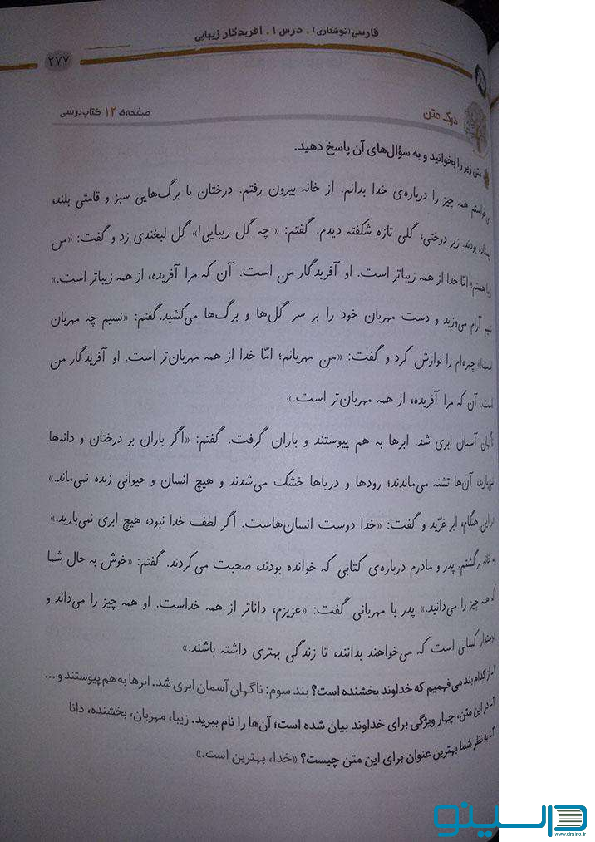 فارسی (نوشتاری) . درس ۱ . آفریدگار زیبایی
۲۷۷
درک متن
صفحه‌ی ۱۲ کتاب درسی
متن زیر را بخوانید و به سؤال‌های آن پاسخ دهید.
همه چیز را درباره‌ی خدا بدانم. از خانه بیرون رفتم. درختان با برگ‌هایی سبز و قامتی بلند،
بودند. زیر درختی، گلی تازه شکفته دیدم. گفتم: «چه گل زیبایی!» گل لبخندی زد و گفت: «من
زیبا هستم؛ امّا خدا از همه زیباتر است. او آفریدگار من است. آن که مرا آفریده، از همه زیباتر است.»
آرام می‌وزید و دست مهربان خود را بر سر گل‌ها و برگ‌ها می‌کشید. گفتم: «نسیم چه مهربان
است!» چهره‌ام را نوازش کرد و گفت: «من مهربانم؛ امّا خدا از همه مهربان‌تر است. او آفریدگار من
است. آن که مرا آفریده، از همه مهربان‌تر است.»
ناگهان آسمان ابری شد. ابرها به هم پیوستند و باران گرفت. گفتم: «اگر باران بر درختان و دانه‌ها
نمی‌بارید، آن‌ها تشنه می‌ماندند؛ رودها و دریاها خشک می‌شدند و هیچ انسان و حیوانی زنده نمی‌ماند.»
در این هنگام، ابر غرّید و گفت: «خدا دوست انسان‌هاست. اگر لطف خدا نبود، هیچ ابری نمی‌بارید.»
به خانه برگشتم. پدر و مادرم درباره‌ی کتابی که خوانده بودند، صحبت می‌کردند. گفتم: «خوش به حال شما
که همه چیز را می‌دانید.» پدر با مهربانی گفت: «عزیزم، داناتر از همه خداست. او همه چیز را می‌داند و
کسانی است که می‌خواهند بدانند، تا زندگی بهتری داشته باشند.»
۱ـ از کدام بند می‌فهمیم که خداوند بخشنده است؟ بند سوم: ناگهان آسمان ابری شد. ابرها به هم پیوستند و ...
۲ـ در این متن، چهار ویژگی برای خداوند بیان شده است؛ آن‌ها را نام ببرید. زیبا، مهربان، بخشنده، دانا
۳ـ به نظر شما بهترین عنوان برای این متن چیست؟ «خدا، بهترین است.»
درسینو
www.drsino.ir